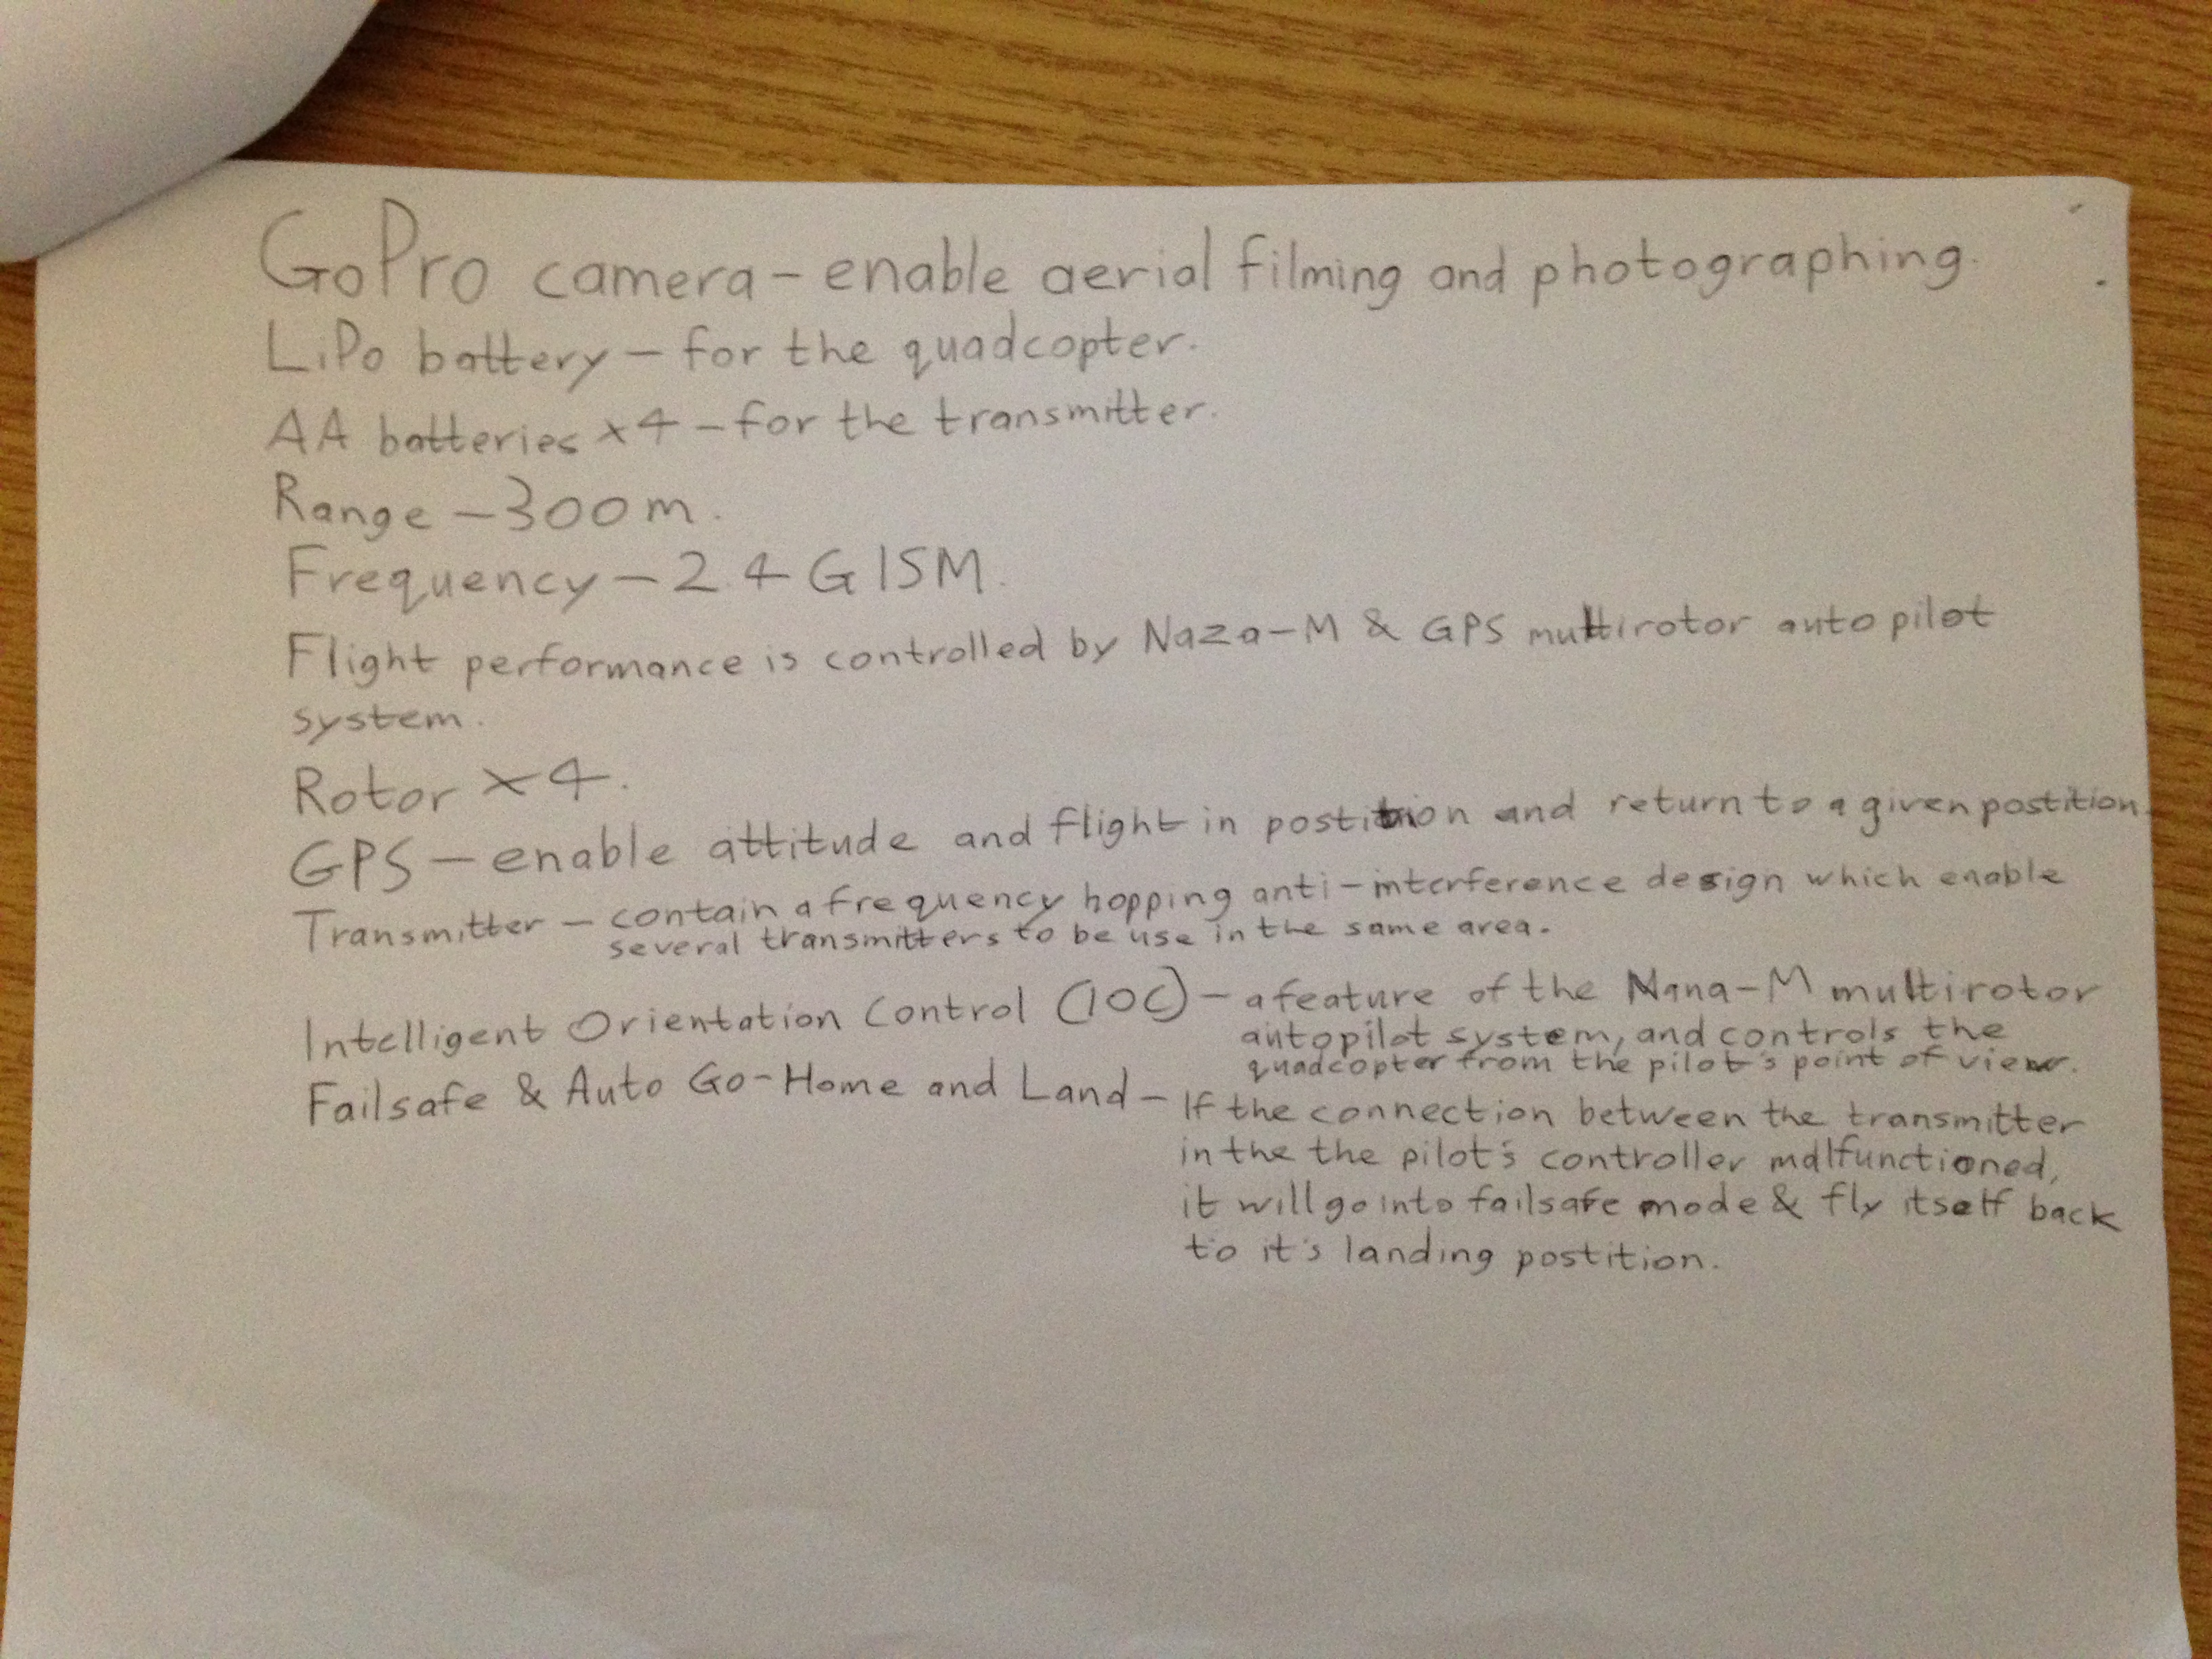 GoPro camera – enable aerial filming and photographing.
LiPo battery – for the quadcopter.
AA batteries x4 – for the transmitter.
Range – 300m.
Frequency – 2.4 G ISM.
Flight performance is controlled by Naza-M & GPS multirotor auto pilot
system.
Rotor x4.
GPS – enable attitude and flight in postition and return to a given postition.
Transmitter – contain a frequency hopping anti-interference design which enable
several transmitters to be use in the same area.
Intelligent Orientation Control (IOC) – a feature of the Nana-M multirotor
autopilot system, and controls the
quadcopter from the pilot's point of view.
Failsafe & Auto Go-Home and Land – If the connection between the transmitter
in the the pilot's controller malfunctioned,
it will go into failsafe mode & fly itself back
to it's landing postition.